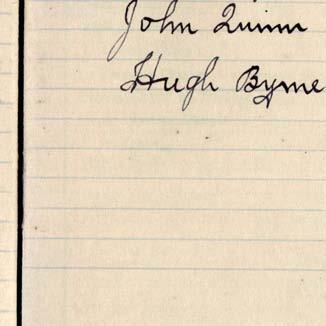 John Quinn
Hugh Byrne